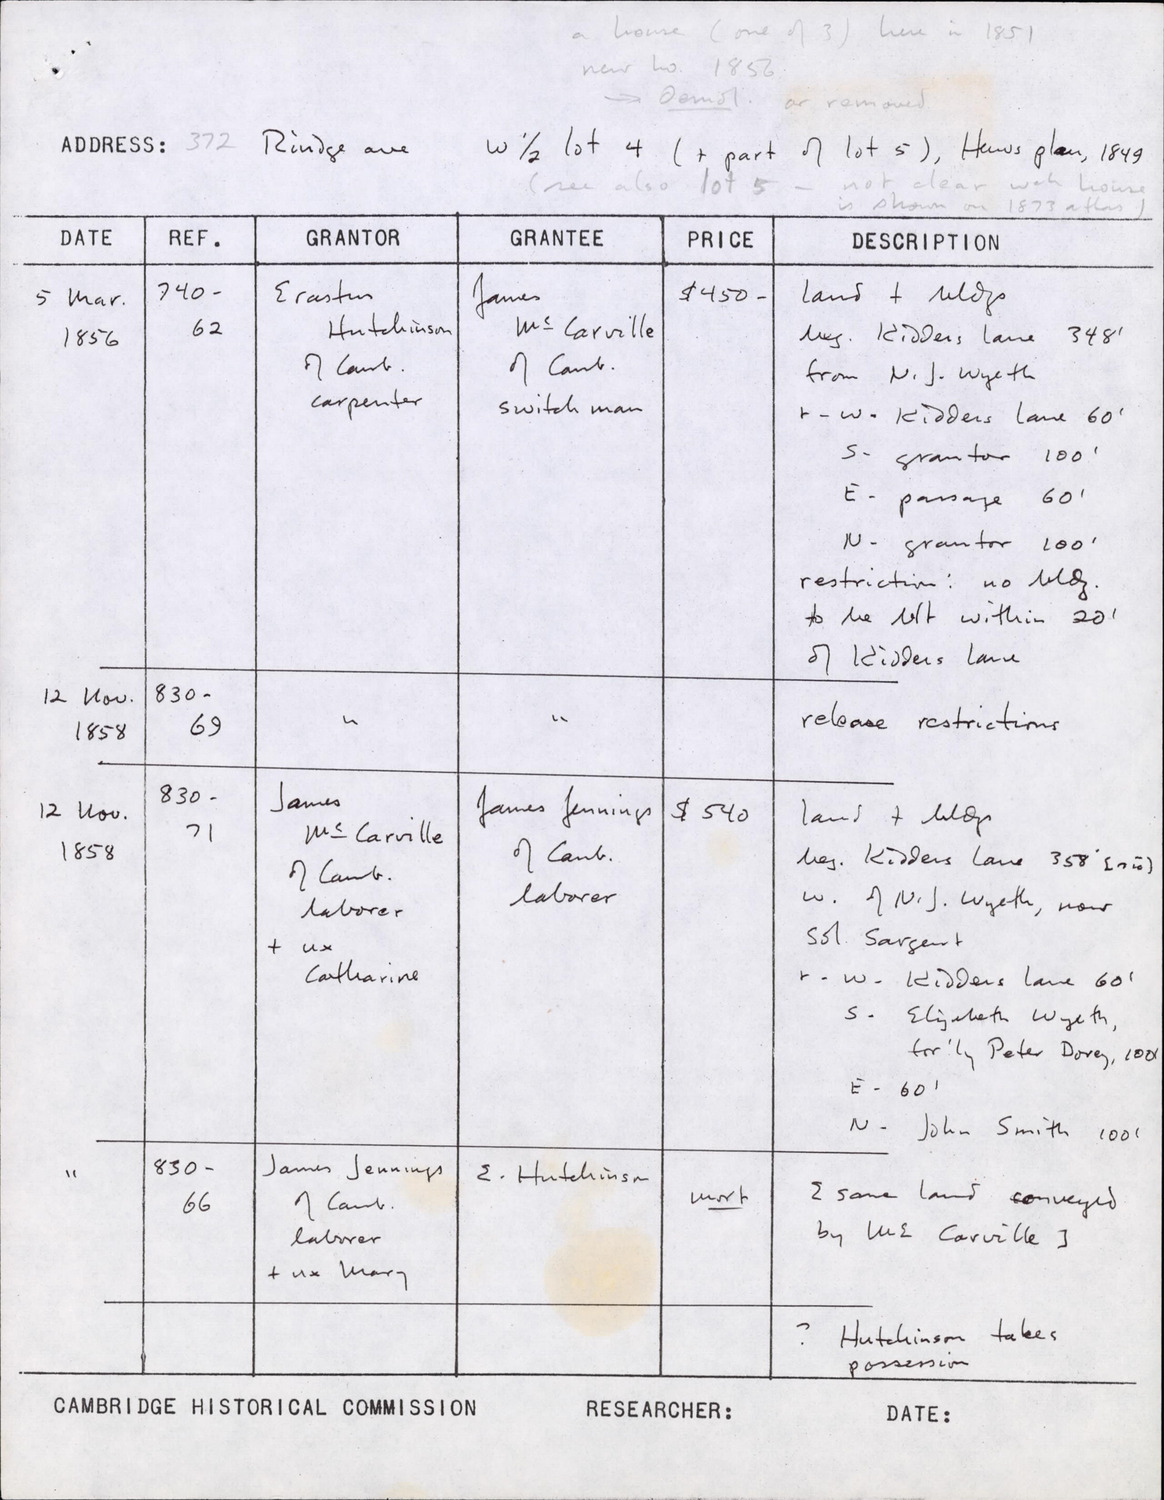 a house (one of 3) here in 1851
new ho. 1856
→ Demol. or removed
ADDRESS: 372 Rindge ave W 1/2 lot 4 (+ part of lot 5), Hews plan, 1849
(see also lot 5 - not clear wch house
is shown on 1873 atlas)
DATE REF. GRANTOR GRANTEE PRICE DESCRIPTION
5 Mar. 1856
740-62
Erastus
Hutchinson
of Camb.
carpenter
James
McCarville
of Camb.
switchman
$450-
land + bldgs
beg. Kidders Lane 348'
from N.J. Wyeth
t-w- Kidders Lane 60'
S- grantor 100'
E- passage 60'
N- grantor 100'
restriction: no bldg.
to be blt within 20'
of Kidders Lane
12 Nov. 1858
830-69
"
"
release restrictions
12 Nov. 1858
830-71
James
McCarville
of Camb.
laborer
+ ux
Catharine
James Jennings
of Camb.
laborer
$540
land + bldgs
beg. Kidders Lane 358' [sic]
w. of N.J. Wyeth, now
Sol Sargent
t-w- Kidders Lane 60'
S- Elizabeth Wyeth,
for'ly Peter Dorey, 100'
E- 60'
N- John Smith 100'
"
830-66
James Jennings
of Camb.
laborer
+ ux Mary
E. Hutchinson
mort
[same land conveyed
by McCarville]
? Hutchinson takes
possession
CAMBRIDGE HISTORICAL COMMISSION RESEARCHER: DATE: